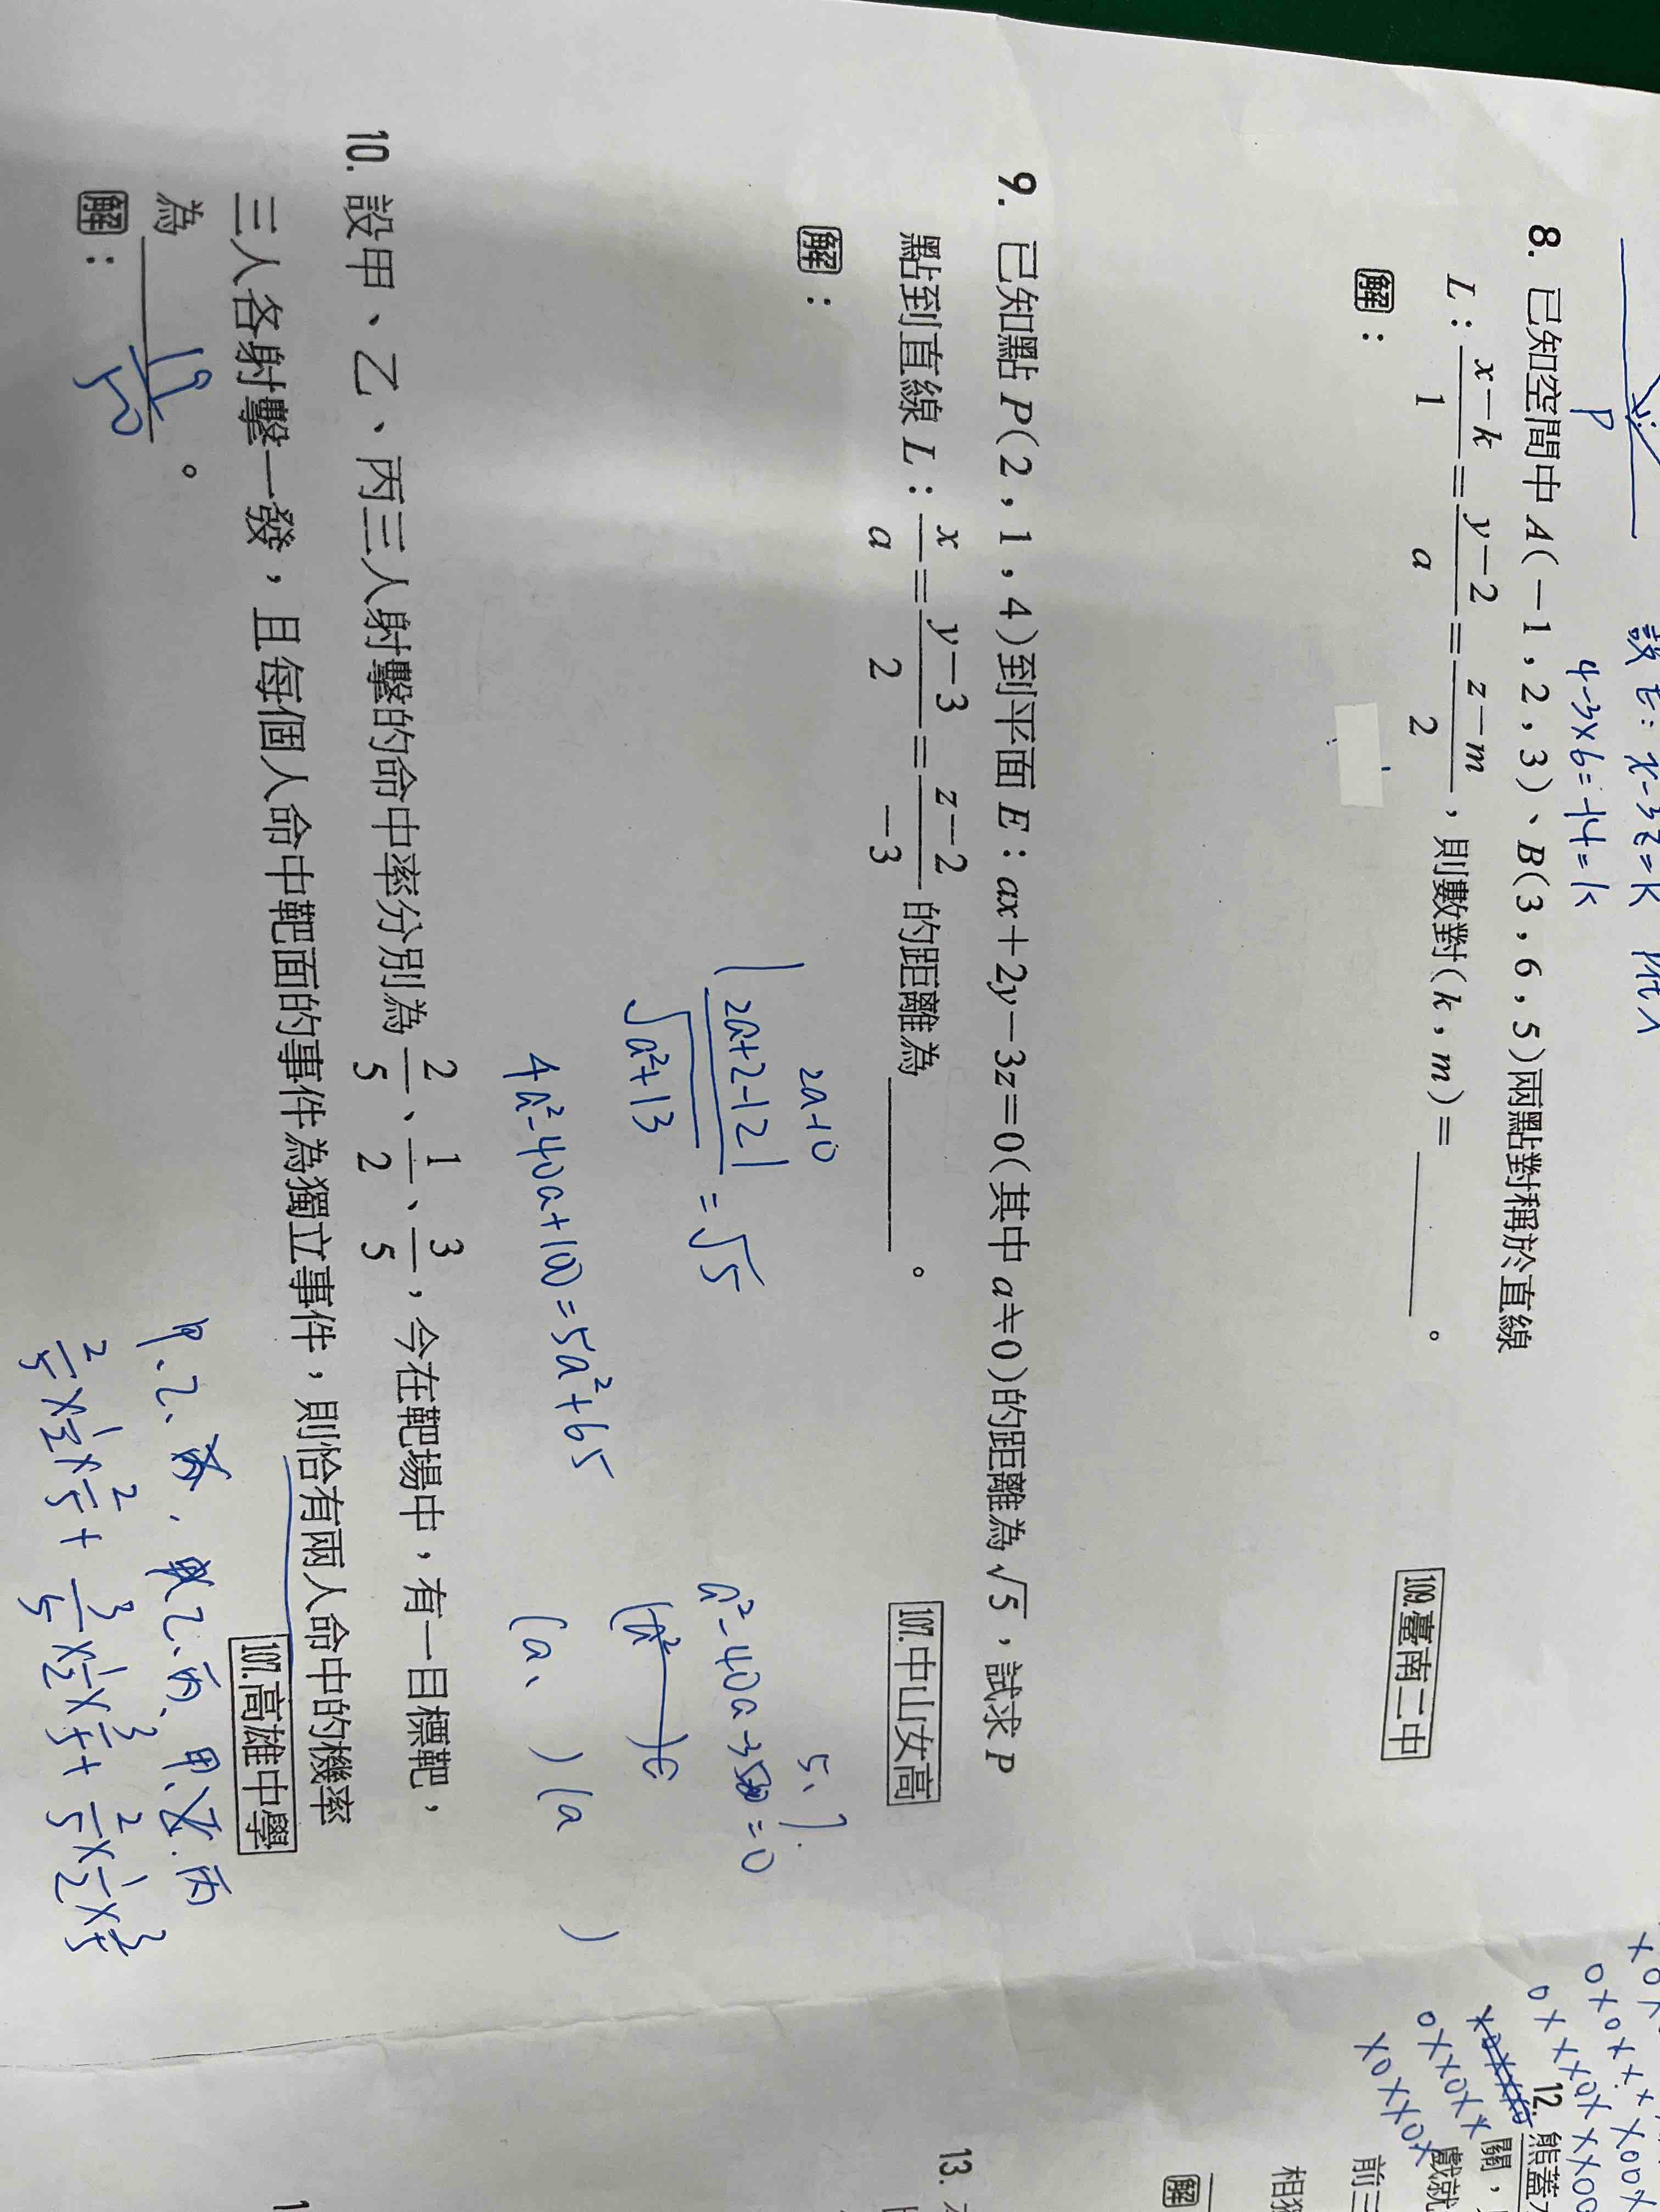 設E:x-3z=k
4-3×6=-14=k
P
8. 已知空間中 A(-1,2,3)、B(3,6,5)兩點對稱於直線
L:\frac{x-k}{1}=\frac{y-2}{a}=\frac{z-m}{2},則數對(k,m)=________。
109.臺南二中
解:
9. 已知點 P(2,1,4)到平面 E:ax+2y-3z=0(其中 a≠0)的距離為√5,試求 P
點到直線 L:\frac{x}{a}=\frac{y-3}{2}=\frac{z-2}{-3}的距離為________。
107.中山女高
解:
2a-10
\frac{|2a+2-12|}{\sqrt{a²+13}}=√5
4a²-40a+100=5a²+65
5、7.
=0
(a、 )(a )
10. 設甲、乙、丙三人射擊的命中率分別為\frac{2}{5}、\frac{1}{2}、\frac{3}{5},今在靶場中,有一目標靶,
三人各射擊一發,且每個人命中靶面的事件為獨立事件,則恰有兩人命中的機率
為________。
107.高雄中學
解:
甲、乙、丙, 甲乙、丙、甲、乙.丙
\frac{2}{5}×\frac{1}{2}×\frac{2}{5}+\frac{3}{5}×\frac{1}{2}×\frac{3}{5}+\frac{2}{5}×\frac{1}{2}×\frac{3}{5}
12. 熊蓋
關,
戲就
前三
相獨
解
13.
1